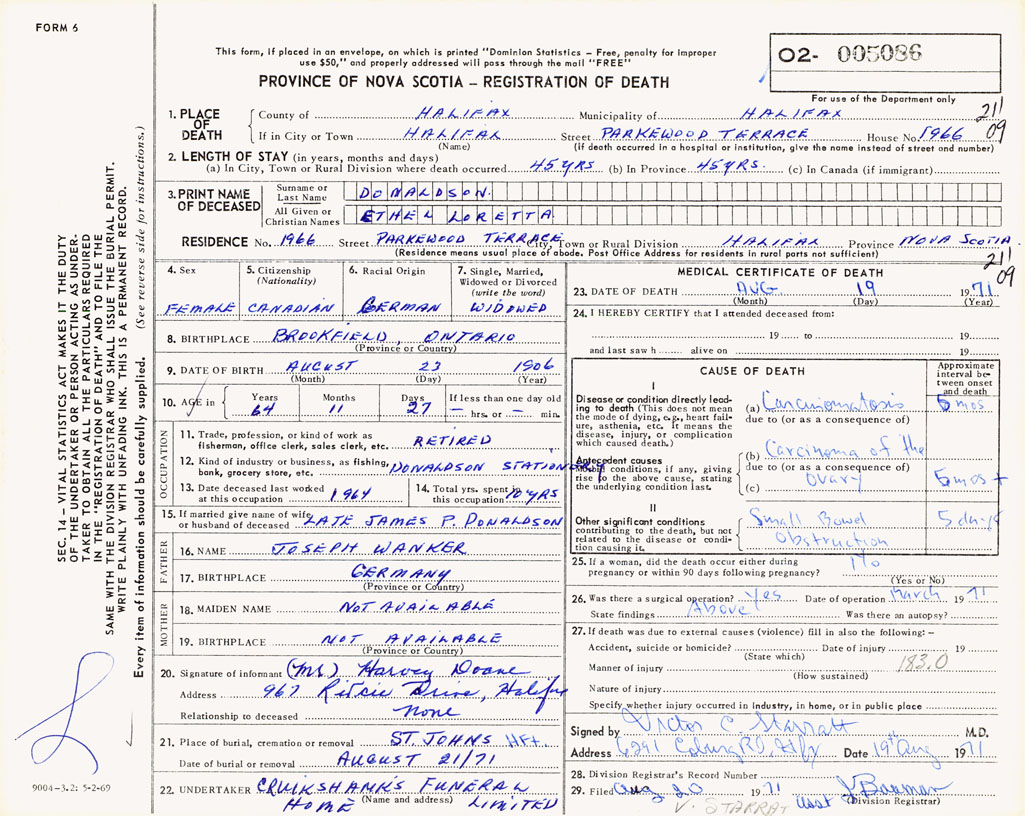 FORM 6
This form, if placed in an envelope, on which is printed "Dominion Statistics – Free, penalty for improper
use $50," and properly addressed will pass through the mail "FREE"
PROVINCE OF NOVA SCOTIA – REGISTRATION OF DEATH
O2- 005086
For use of the Department only
211
09
1. PLACE OF DEATH
County of HALIFAX Municipality of HALIFAX
If in City or Town HALIFAX Street PARKEWOOD TERRACE House No. 1966
(Name) (if death occurred in a hospital or institution, give the name instead of street and number)
2. LENGTH OF STAY (in years, months and days)
(a) In City, Town or Rural Division where death occurred 45 YRS (b) In Province 45 YRS. (c) In Canada (if immigrant)
3. PRINT NAME OF DECEASED
Surname or Last Name DONALDSON
All Given or Christian Names ETHEL LORETTA
RESIDENCE No. 1966 Street PARKEWOOD TERRACE City, Town or Rural Division HALIFAX Province NOVA SCOTIA
(Residence means usual place of abode. Post Office Address for residents in rural parts not sufficient)
211
09
4. Sex FEMALE
5. Citizenship (Nationality) CANADIAN
6. Racial Origin GERMAN
7. Single, Married, Widowed or Divorced (write the word) WIDOWED
8. BIRTHPLACE BROOKFIELD, ONTARIO
(Province or Country)
9. DATE OF BIRTH AUGUST 23 1906
(Month) (Day) (Year)
10. AGE in Years 64 Months 11 Days 27 If less than one day old – hrs. or – min.
OCCUPATION
11. Trade, profession, or kind of work as fisherman, office clerk, sales clerk, etc. RETIRED
12. Kind of industry or business, as fishing, bank, grocery store, etc. DONALDSON STATIONERY
13. Date deceased last worked at this occupation 1964
14. Total yrs. spent in this occupation 10 YRS
15. If married give name of wife or husband of deceased LATE JAMES P. DONALDSON
FATHER
16. NAME JOSEPH WANKER
17. BIRTHPLACE GERMANY
(Province or Country)
MOTHER
18. MAIDEN NAME NOT AVAILABLE
19. BIRTHPLACE NOT AVAILABLE
(Province or Country)
20. Signature of informant (Mr.) Harvey Doane
Address 967 Drive, Halifax
Relationship to deceased None
21. Place of burial, cremation or removal ST. JOHNS HFX.
Date of burial or removal AUGUST 21/71
22. UNDERTAKER CRUIKSHANKS FUNERAL
HOME (Name and address) LIMITED
MEDICAL CERTIFICATE OF DEATH
23. DATE OF DEATH AUG 19 1971
(Month) (Day) (Year)
24. I HEREBY CERTIFY that I attended deceased from:
19 to 19
and last saw h alive on 19
CAUSE OF DEATH
Approximate interval between onset and death
I
Disease or condition directly leading to death (This does not mean the mode of dying, e.g., heart failure, asthenia, etc. It means the disease, injury, or complication which caused death.)
(a) Carcinomatosis 5 mos
due to (or as a consequence of)
Antecedent causes
Morbid conditions, if any, giving rise to the above cause, stating the underlying condition last.
(b) Carcinoma of the
due to (or as a consequence of)
(c) Ovary 5 mos +
II
Other significant conditions contributing to the death, but not related to the disease or condition causing it.
Small Bowel 5 days
Obstruction
25. If a woman, did the death occur either during pregnancy or within 90 days following pregnancy? No
(Yes or No)
26. Was there a surgical operation? Yes Date of operation March 1971
State findings Above Was there an autopsy?
27. If death was due to external causes (violence) fill in also the following: –
Accident, suicide or homicide? Date of injury 19
(State which)
183.0
Manner of injury
(How sustained)
Nature of injury
Specify whether injury occurred in industry, in home, or in public place
Signed by Victor C. Starratt M.D.
Address 6291 Coburg RD. Hfx Date 19th Aug 1971
28. Division Registrar's Record Number
29. Filed Aug 20 1971 asst J Bauman
(Division Registrar)
V. STARRAT
SEC. 14 – VITAL STATISTICS ACT MAKES IT THE DUTY
OF THE UNDERTAKER OR PERSON ACTING AS UNDER-
TAKER TO OBTAIN ALL THE PARTICULARS REQUIRED
IN THE "REGISTRATION OF DEATH" AND TO FILE THE
SAME WITH THE DIVISION REGISTRAR WHO SHALL ISSUE THE BURIAL PERMIT.
WRITE PLAINLY WITH UNFADING INK. THIS IS A PERMANENT RECORD.
Every item of information should be carefully supplied. (See reverse side for instructions.)
9004-3.2: 5-2-69